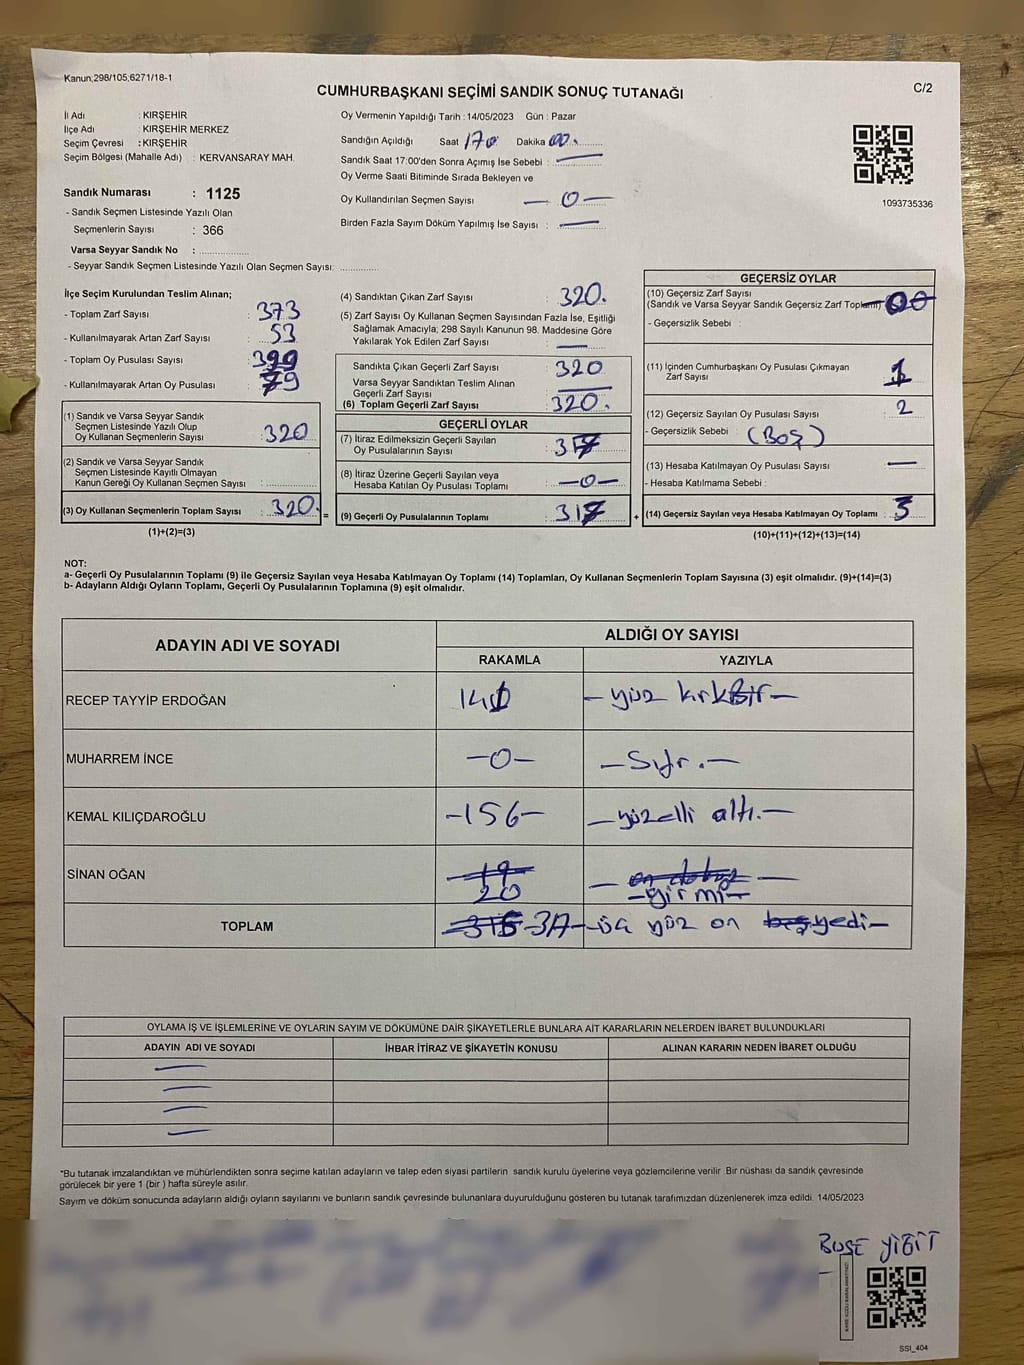 Kanun;298/105;6271/18-1
C/2
CUMHURBAŞKANI SEÇİMİ SANDIK SONUÇ TUTANAĞI
İl Adı : KIRŞEHİR
İlçe Adı : KIRŞEHİR MERKEZ
Seçim Çevresi : KIRŞEHİR
Seçim Bölgesi (Mahalle Adı) : KERVANSARAY MAH.
Sandık Numarası : 1125
- Sandık Seçmen Listesinde Yazılı Olan
Seçmenlerin Sayısı : 366
Varsa Seyyar Sandık No :
- Seyyar Sandık Seçmen Listesinde Yazılı Olan Seçmen Sayısı:
Oy Vermenin Yapıldığı Tarih : 14/05/2023 Gün : Pazar
Sandığın Açıldığı Saat Dakika
Sandık Saat 17:00'den Sonra Açımış İse Sebebi : —
Oy Verme Saati Bitiminde Sırada Bekleyen ve
Oy Kullandırılan Seçmen Sayısı — 0 —
Birden Fazla Sayım Döküm Yapılmış İse Sayısı : —
1093735336
İlçe Seçim Kurulundan Teslim Alınan;
- Toplam Zarf Sayısı : 373
- Kullanılmayarak Artan Zarf Sayısı : 53
- Toplam Oy Pusulası Sayısı :
- Kullanılmayarak Artan Oy Pusulası : 79
(1) Sandık ve Varsa Seyyar Sandık
Seçmen Listesinde Yazılı Olup
Oy Kullanan Seçmenlerin Sayısı : 320
(2) Sandık ve Varsa Seyyar Sandık
Seçmen Listesinde Kayıtlı Olmayan
Kanun Gereği Oy Kullanan Seçmen Sayısı :
(3) Oy Kullanan Seçmenlerin Toplam Sayısı : 320. =
(1)+(2)=(3)
(4) Sandıktan Çıkan Zarf Sayısı : 320.
(5) Zarf Sayısı Oy Kullanan Seçmen Sayısından Fazla İse, Eşitliği
Sağlamak Amacıyla; 298 Sayılı Kanunun 98. Maddesine Göre
Yakılarak Yok Edilen Zarf Sayısı : —
Sandıkta Çıkan Geçerli Zarf Sayısı : 320
Varsa Seyyar Sandıktan Teslim Alınan
Geçerli Zarf Sayısı : —
(6) Toplam Geçerli Zarf Sayısı : 320.
GEÇERLİ OYLAR
(7) İtiraz Edilmeksizin Geçerli Sayılan
Oy Pusulalarının Sayısı : 317
(8) İtiraz Üzerine Geçerli Sayılan veya
Hesaba Katılan Oy Pusulası Toplamı : —0—
(9) Geçerli Oy Pusulalarının Toplamı : 317 +
GEÇERSİZ OYLAR
(10) Geçersiz Zarf Sayısı
(Sandık ve Varsa Seyyar Sandık Geçersiz Zarf Toplamı)
- Geçersizlik Sebebi :
(11) İçinden Cumhurbaşkanı Oy Pusulası Çıkmayan
Zarf Sayısı : 1
(12) Geçersiz Sayılan Oy Pusulası Sayısı : 2
- Geçersizlik Sebebi : (BOŞ)
(13) Hesaba Katılmayan Oy Pusulası Sayısı : —
- Hesaba Katılmama Sebebi :
(14) Geçersiz Sayılan veya Hesaba Katılmayan Oy Toplamı : 3
(10)+(11)+(12)+(13)=(14)
NOT:
a- Geçerli Oy Pusulalarının Toplamı (9) ile Geçersiz Sayılan veya Hesaba Katılmayan Oy Toplamı (14) Toplamları, Oy Kullanan Seçmenlerin Toplam Sayısına (3) eşit olmalıdır. (9)+(14)=(3)
b- Adayların Aldığı Oyların Toplamı, Geçerli Oy Pusulalarının Toplamına (9) eşit olmalıdır.
ADAYIN ADI VE SOYADI ALDIĞI OY SAYISI
RAKAMLA YAZIYLA
RECEP TAYYİP ERDOĞAN 141 — yüz kırkBir —
MUHARREM İNCE —0— — Sıfır. —
KEMAL KILIÇDAROĞLU —156— — yüzelli altı. —
SİNAN OĞAN 19 — on dokuz —
20 — yirmi —
TOPLAM 315 317 — üç yüz on beş yedi —
OYLAMA İŞ VE İŞLEMLERİNE VE OYLARIN SAYIM VE DÖKÜMÜNE DAİR ŞİKAYETLERLE BUNLARA AİT KARARLARIN NELERDEN İBARET BULUNDUKLARI
ADAYIN ADI VE SOYADI İHBAR İTİRAZ VE ŞİKAYETİN KONUSU ALINAN KARARIN NEDEN İBARET OLDUĞU
*Bu tutanak imzalandıktan ve mühürlendikten sonra seçime katılan adayların ve talep eden siyasi partilerin sandık kurulu üyelerine veya gözlemcilerine verilir. Bir nüshası da sandık çevresinde
görülecek bir yere 1 (bir ) hafta süreyle asılır.
Sayım ve döküm sonucunda adayların aldığı oyların sayılarını ve bunların sandık çevresinde bulunanlara duyurulduğunu gösteren bu tutanak tarafımızdan düzenlenerek imza edildi. 14/05/2023
BUSE YİĞİT
SSI_404